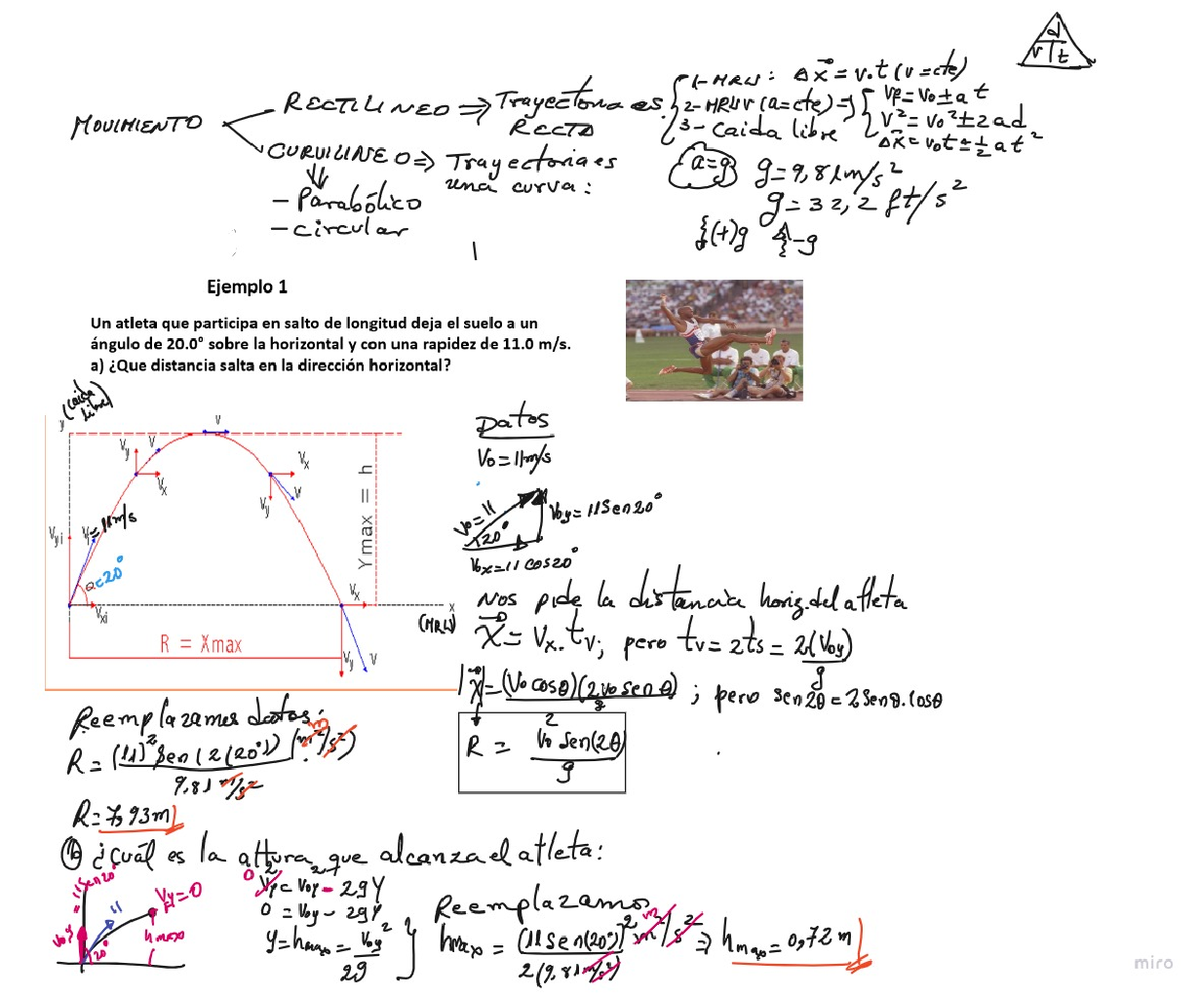 d
v t
MOVIMIENTO
RECTILINEO ⇒ Trayectoria es RECTO
1- MRU: Δx⃗ = v.t (v = cte)
2- MRUV (a = cte) ⇒
3- Caida libre
Vf = Vo ± at
V² = Vo² ± 2ad
Δx⃗ = Vot ± ½at²
CURVILINEO ⇒ Trayectoria es una curva:
- Parabólico
- circular
a=g
g = 9,81 m/s²
g = 32,2 ft/s²
(+)g
-g
Ejemplo 1
Un atleta que participa en salto de longitud deja el suelo a un
ángulo de 20.0° sobre la horizontal y con una rapidez de 11.0 m/s.
a) ¿Que distancia salta en la dirección horizontal?
y (caida libre)
V
Vy
V
Vx
Vx
V
Vy
Ymax = h
Vyi
Vi=11m/s
θ=20°
Vxi
Vx
x
(MRU)
R = Xmax
Vy
V
Datos
Vo = 11m/s
Vo = 11
20°
Voy = 11Sen20°
Vox = 11 cos20°
Nos pide la distancia horiz. del atleta
x⃗ = Vx. tv; pero tv = 2ts = 2(Voy)/g
|x⃗| = (Vo cosθ)(2Vo senθ)/g ; pero sen2θ = 2Senθ.Cosθ
R = Vo² Sen(2θ)/g
Reemplazamos datos:
R = (11)² Sen(2(20°)) (m²/s²)
9,81 m/s²
R = 7,93m
(b) ¿Cuál es la altura que alcanza el atleta:
Voy = 11Sen20°
11
20°
Vy = 0
hmax
0
Vf² = Voy² - 2gY
0 = Voy - 2gY
Y = hmax = Voy²/2g
Reemplazamos
hmax = (11Sen(20°))² m²/s² ⇒ hmax = 0,72 m
2(9,81m/s²)
miro